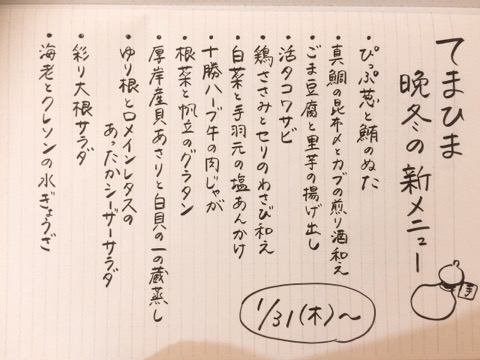 てまひま
晩冬の新メニュー
・ぴっぷ葱と鮪のぬた
・真鯛の昆布〆とカブの煎り酒和え
・ごま豆腐と里芋の揚げ出し
・活タコワサビ
・鶏ささみとセリのわさび和え
・白菜と手羽元の塩あんかけ
・十勝ハーブ牛の肉じゃが
・根菜と帆立のグラタン
・厚岸産貝あさりと白貝の一の蔵蒸し
・ゆり根とロメインレタスの
あったかシーザーサラダ
・彩り大根サラダ
・海老とクレソンの水ぎょうざ
1/31(木)〜
手